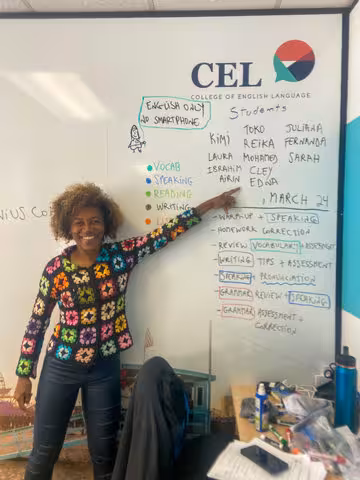 CEL
COLLEGE OF ENGLISH LANGUAGE
ENGLISH ONLY
NO SMARTPHONE
Students
KIMI TOKO JULIANA
LAURA REIKA FERNANDA
IBRAHIM MOHAMED SARAH
AIRIN CLEY
EDNA
VOCAB
SPEAKING
READING
WRITING
, MARCH 24
- WARM-UP + SPEAKING
- HOMEWORK CORRECTION
- REVIEW VOCABULARY + ASSESSMENT
- WRITING TIPS + ASSESSMENT
- SPEAKING + PRONUNCIATION
- GRAMMAR REVIEW + SPEAKING
- GRAMMAR ASSESSMENT +
CORRECTION